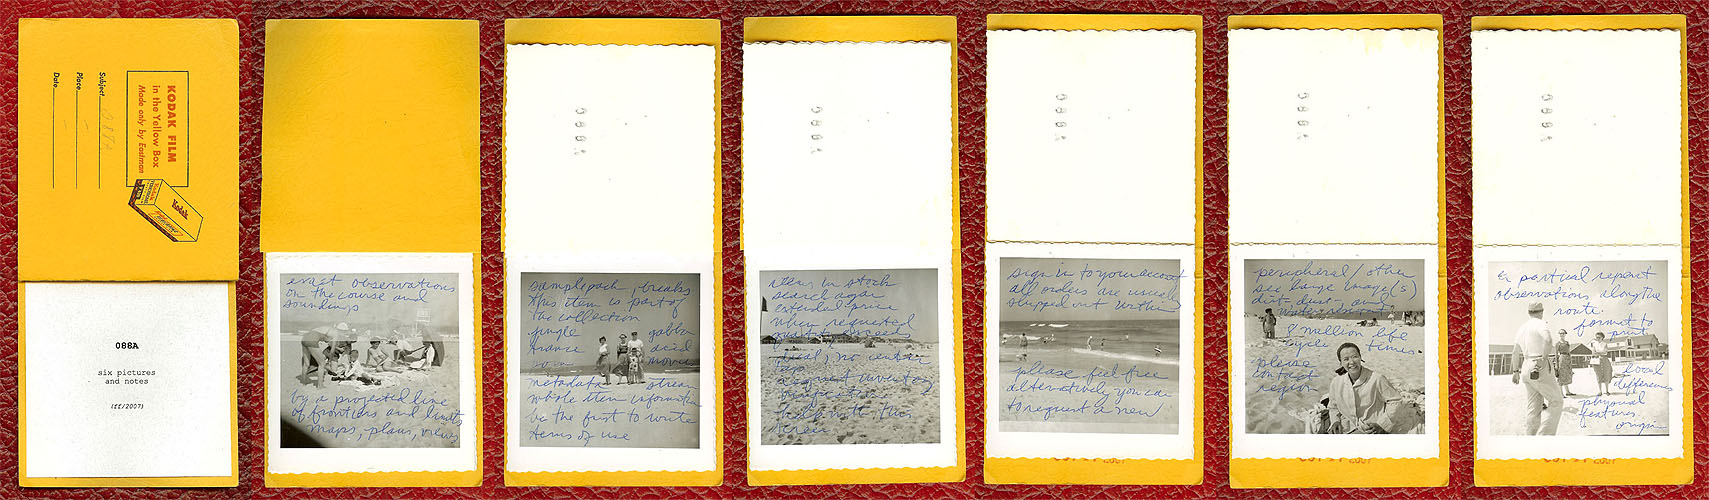 KODAK FILM
in the Yellow Box
Made only by Eastman
Kodak
Subject 088A
Place
Date
088A
six pictures
and notes
(ff/2007)
exact observations
on the course and
soundings
by a projected line
of frontiers and limits
maps, plans, views
088A
samplepack, breaks
this item is part of
the collection
jungle gabba
trance acid
metadata stream
whole item information
be the first to write
terms of use
088A
items in stock
search again
extended price
when requested
quantity exceed
request inventory
088A
sign in to your account
all orders are usually
shipped out within
please feel free
alternatively you can
to request a new
088A
peripheral / other
see large image(s)
dirt-, dust-, and
water-resistant
8 million life
cycle times
please
contact
region
088A
or partical repent
observations along the
route
format to
print
local
differences
physical
features
origin